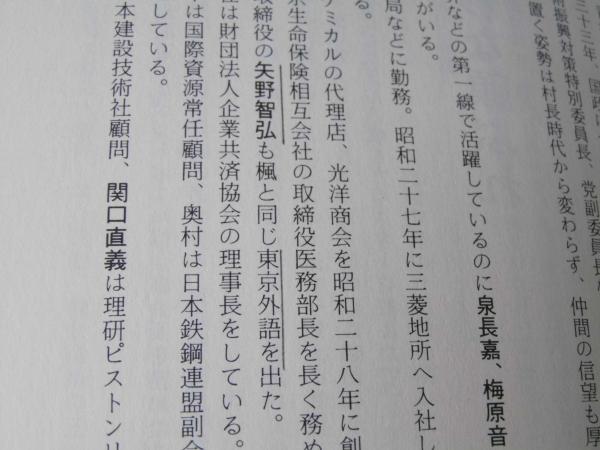 三十三年、国政に
術振興対策特別委員長、党副委員長な
置く姿勢は村長時代から変わらず、仲間の信望も厚
界などの第一線で活躍しているのに泉長嘉、梅原音
がいる。
局などに勤務。昭和二十七年に三菱地所へ入社し
る。
ミカルの代理店、光洋商会を昭和二十八年に創
京生命保険相互会社の取締役医務部長を長く務め
取締役の矢野智弘も楓と同じ東京外語を出た。
は財団法人企業共済協会の理事長をしている。
は国際資源常任顧問、奥村は日本鉄鋼連盟副会
している。
本建設技術社顧問、関口直義は理研ピストンリ